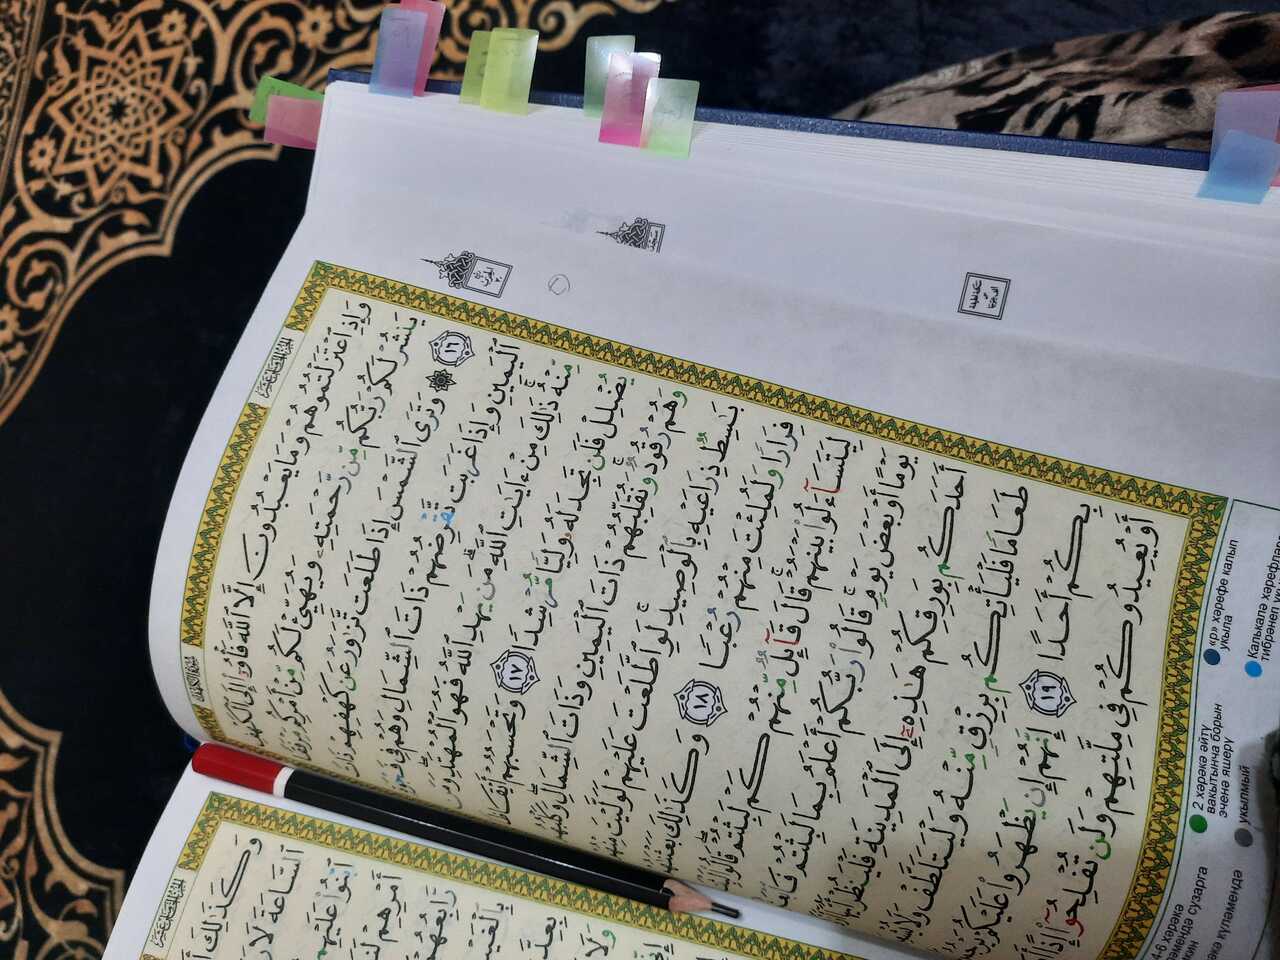 وَإِذِ ٱعْتَزَلْتُمُوهُمْ وَمَا يَعْبُدُونَ إِلَّا ٱللَّهَ فَأْوُۥٓا۟ إِلَى ٱلْكَهْفِ
يَنشُرْ لَكُمْ رَبُّكُم مِّن رَّحْمَتِهِۦ وَيُهَيِّئْ لَكُم مِّنْ أَمْرِكُم مِّرْفَقًا
١٦ ۞ وَتَرَى ٱلشَّمْسَ إِذَا طَلَعَت تَّزَٰوَرُ عَن كَهْفِهِمْ ذَاتَ
ٱلْيَمِينِ وَإِذَا غَرَبَت تَّقْرِضُهُمْ ذَاتَ ٱلشِّمَالِ وَهُمْ فِى
مِّنْهُ ذَٰلِكَ مِنْ ءَايَٰتِ ٱللَّهِ مَن يَهْدِ ٱللَّهُ فَهُوَ ٱلْمُهْتَدِ وَمَن
يُضْلِلْ فَلَن تَجِدَ لَهُۥ وَلِيًّا مُّرْشِدًا ١٧ وَتَحْسَبُهُمْ أَيْقَاظًا
وَهُمْ رُقُودٌ وَنُقَلِّبُهُمْ ذَاتَ ٱلْيَمِينِ وَذَاتَ ٱلشِّمَالِ وَكَلْبُهُم
بَٰسِطٌ ذِرَاعَيْهِ بِٱلْوَصِيدِ لَوِ ٱطَّلَعْتَ عَلَيْهِمْ لَوَلَّيْتَ مِنْهُمْ
فِرَارًا وَلَمُلِئْتَ مِنْهُمْ رُعْبًا ١٨ وَكَذَٰلِكَ بَعَثْنَٰهُمْ
لِيَتَسَآءَلُوا۟ بَيْنَهُمْ قَالَ قَآئِلٌ مِّنْهُمْ كَمْ لَبِثْتُمْ قَالُوا۟ لَبِثْنَا
يَوْمًا أَوْ بَعْضَ يَوْمٍ قَالُوا۟ رَبُّكُمْ أَعْلَمُ بِمَا لَبِثْتُمْ فَٱبْعَثُوٓا۟
أَحَدَكُم بِوَرِقِكُمْ هَٰذِهِۦٓ إِلَى ٱلْمَدِينَةِ فَلْيَنظُرْ أَيُّهَآ
طَعَامًا فَلْيَأْتِكُم بِرِزْقٍ مِّنْهُ وَلْيَتَلَطَّفْ وَلَا يُشْعِرَنَّ
بِكُمْ أَحَدًا ١٩ إِنَّهُمْ إِن يَظْهَرُوا۟ عَلَيْكُمْ يَرْجُمُوكُمْ
أَوْ يُعِيدُوكُمْ فِى مِلَّتِهِمْ وَلَن تُفْلِحُوٓا۟ إِذًا
«р» хәрефе калын укыла
Калькалә хәрефләре
2 хәрәкә әйтү вакытынча борын эченә яшерү
укылмый
4-6 хәрәкә
сузарга
күләмендә
وَكَذَٰلِكَ
ٱلسَّاعَةَ لَا
ٱبْنُوا۟ عَلَيْهِم
أَمْرِهِمْ
رَابِعُهُمْ
بِٱلْغَيْبِ